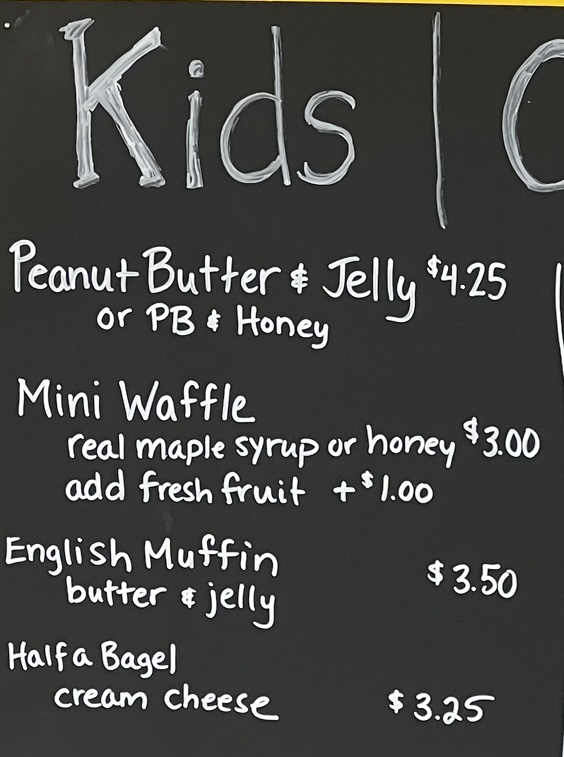 Kids |
Peanut Butter & Jelly $4.25
or PB & Honey
Mini Waffle
real maple syrup or honey $3.00
add fresh fruit +$1.00
English Muffin
butter & jelly $3.50
Half a Bagel
cream cheese $3.25